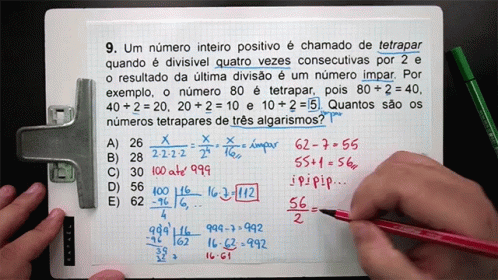 9. Um número inteiro positivo é chamado de tetrapar
quando é divisível quatro vezes consecutivas por 2 e
o resultado da última divisão é um número ímpar. Por
exemplo, o número 80 é tetrapar, pois 80 ÷ 2 = 40,
40 ÷ 2 = 20, 20 ÷ 2 = 10 e 10 ÷ 2 = 5. Quantos são os
números tetrapares de três algarismos?
ímpar
A) 26
B) 28
C) 30
D) 56
E) 62
x/2·2·2·2 = x/2⁴ = x/16 = ímpar
100 até 999
100 | 16
-96 6,...
4
16·7 = 112
999 | 16
-96 62
39
32
7
999-7 = 992
16·62 = 992
16·61
62-7 = 55
55+1 = 56
i p i p i p...
56/2 =